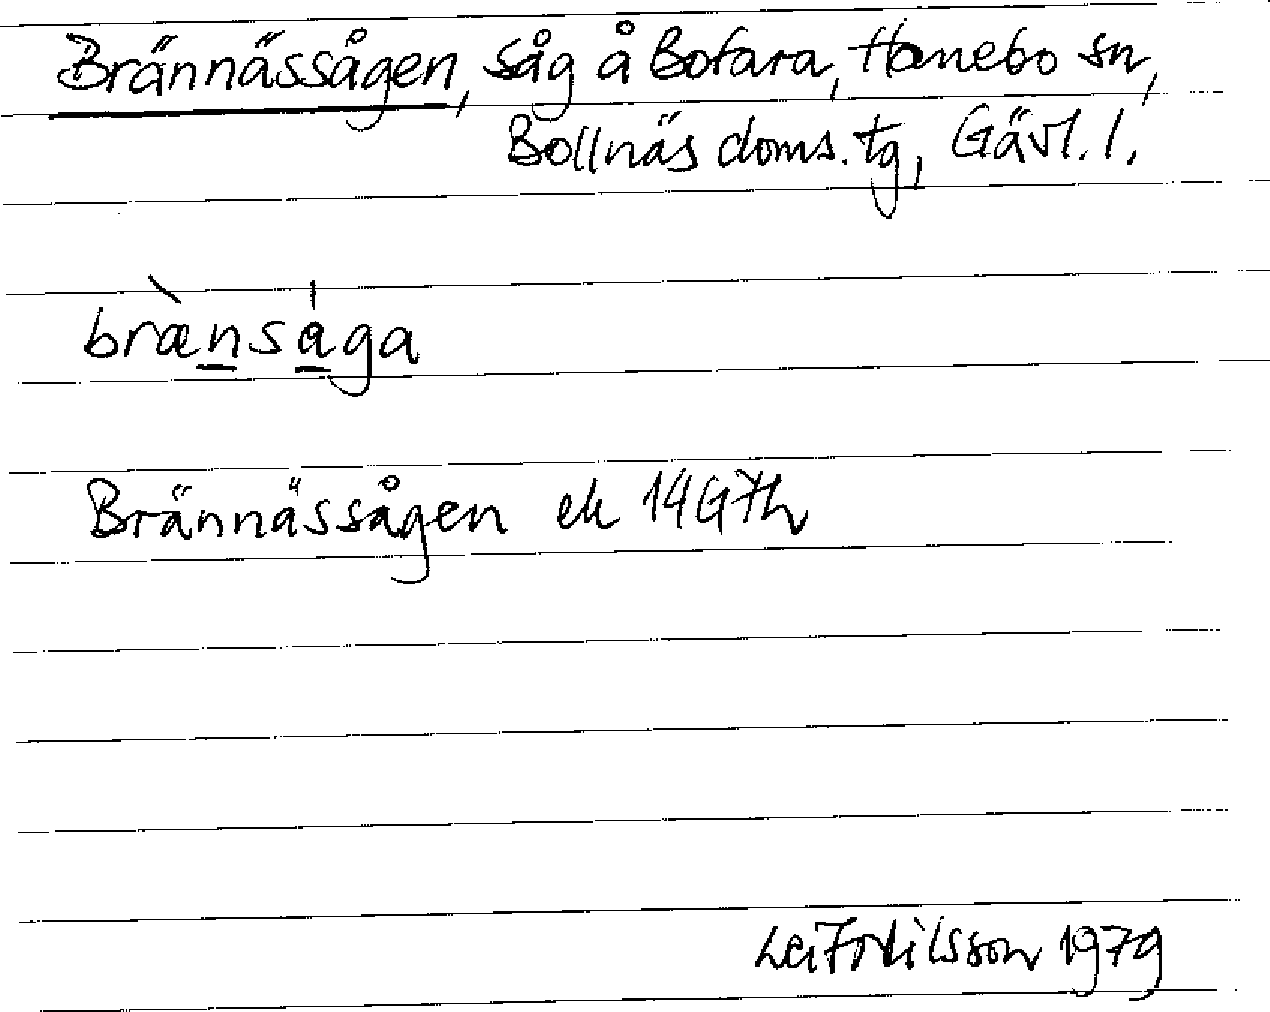 Brännässågen, såg å Bofara, Hanebo sn,
Bollnäs doms. tg, Gävl. l.
brænsåga
Brännässågen ek 14G7h
Leif Nilsson 1979